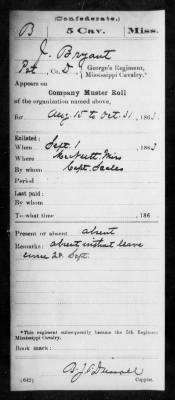 (Confederate.)
B 5 Cav. Miss.
J. Bryant
Pvt, Co. D, George's Regiment, Mississippi Cavalry.*
Appears on
Company Muster Roll
of the organization named above,
for Aug 15 to Oct 31, 1863
Enlisted:
When Sept. 1, 1863
Where Miss
By whom Capt.
Period
Last paid:
By whom
To what time , 186
Present or absent absent
Remarks: absent without leave
since 28 Sept.
*This regiment subsequently became the 5th Regiment Mississippi Cavalry.
Book mark:
(642) Copyist.